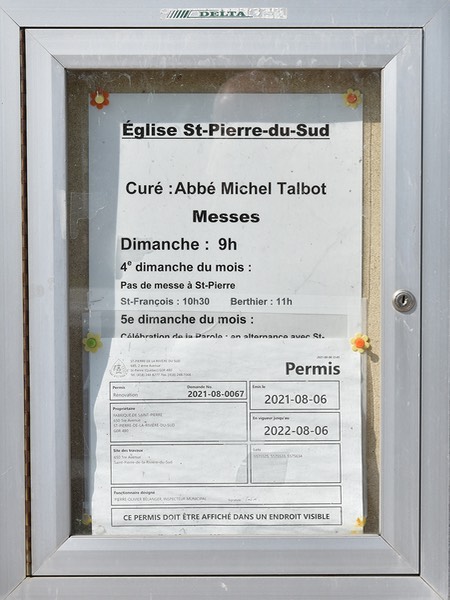 DELTA
Église St-Pierre-du-Sud
Curé : Abbé Michel Talbot
Messes
Dimanche : 9h
4e dimanche du mois :
Pas de messe à St-Pierre
St-François : 10h30 Berthier : 11h
5e dimanche du mois :
Célébration de la Parole : en alternance avec St-
Permis
Permis
Rénovation
Demande No.
2021-08-0067
Émis le
2021-08-06
Propriétaire
FABRIQUE DE SAINT-PIERRE
ST-PIERRE DE LA RIVIÈRE DU SUD
En vigueur jusqu'au
2022-08-06
Site des travaux
Saint-Pierre de la Rivière-du-Sud
Fonctionnaire désigné
CE PERMIS DOIT ÊTRE AFFICHÉ DANS UN ENDROIT VISIBLE